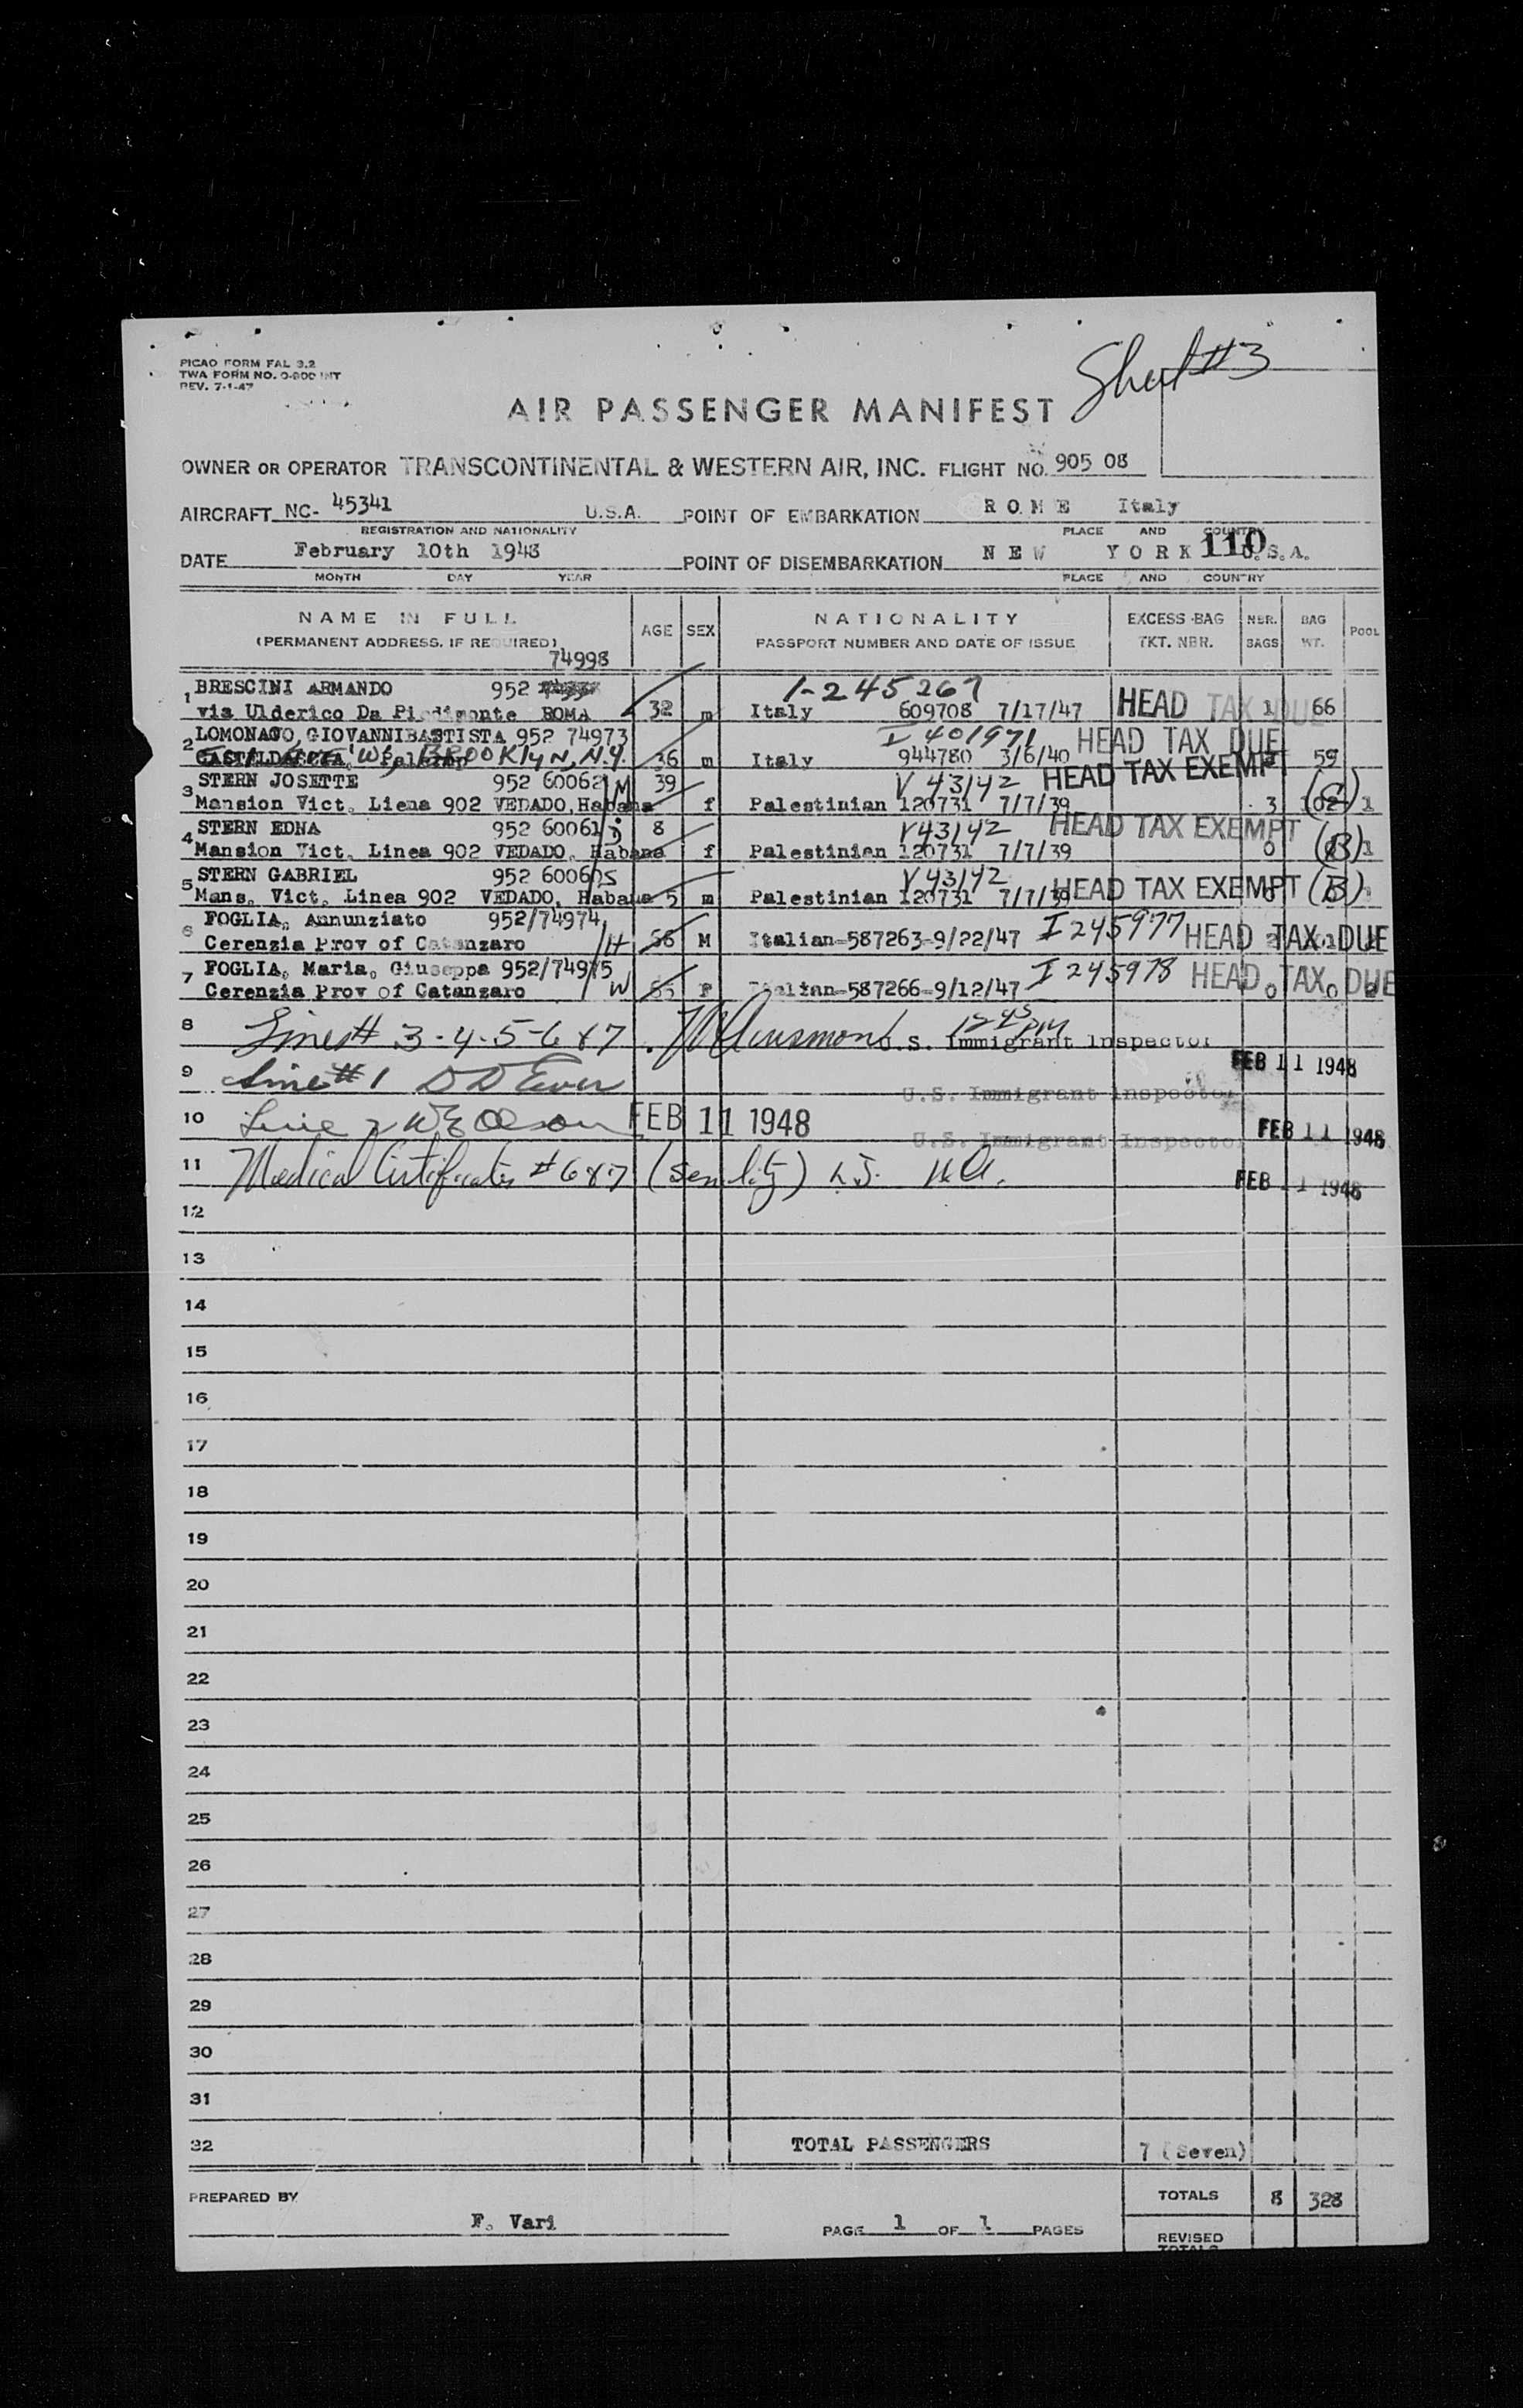 Sheet #3
PICAO FORM FAL 3.2
TWA FORM NO. O-800 INT
REV. 7-1-47
AIR PASSENGER MANIFEST
OWNER OR OPERATOR TRANSCONTINENTAL & WESTERN AIR, INC. FLIGHT NO. 905 08
AIRCRAFT NC- 45341 U.S.A. POINT OF EMBARKATION R O M E Italy
REGISTRATION AND NATIONALITY PLACE AND COUNTRY
110
DATE February 10th 1948 POINT OF DISEMBARKATION N E W Y O R K U.S.A.
MONTH DAY YEAR PLACE AND COUNTRY
NAME IN FULL AGE SEX NATIONALITY EXCESS BAG NBR. BAG POOL
(PERMANENT ADDRESS, IF REQUIRED) PASSPORT NUMBER AND DATE OF ISSUE TKT. NBR. BAGS WT.
74998
1 BRESCINI ARMANDO 952 I-245267 HEAD TAX DUE
via Ulderico Da Piedimonte ROMA 32 m Italy 609708 7/17/47 1 66
2 LOMONACO, GIOVANNIBATTISTA 952 74973 I 401971 HEAD TAX DUE
BROOKLYN, N.Y. 36 m Italy 944780 3/6/40 59
3 STERN JOSETTE 952 60062 M 39 V 43142 HEAD TAX EXEMPT (C)
Mansion Vict. Liena 902 VEDADO, Habana f Palestinian 120731 7/7/39 3 102 1
4 STERN EDNA 952 60061 D 8 V43142 HEAD TAX EXEMPT (B)
Mansion Vict. Linea 902 VEDADO, Habana f Palestinian 120731 7/7/39 0 1
5 STERN GABRIEL 952 60060 S V43142 HEAD TAX EXEMPT (B)
Mans. Vict. Linea 902 VEDADO, Habana 5 m Palestinian 120731 7/7/39
6 FOGLIA, Annunziato 952/74974 I 245977 HEAD TAX DUE
Cerenzia Prov of Catanzaro H M Italian-587263-9/22/47
7 FOGLIA, Maria, Giuseppa 952/74975 I 245978 HEAD TAX DUE
Cerenzia Prov of Catanzaro W F Italian-587266-9/12/47
8 Line# 3-4-5-6 & 7. 1245 PM U.S. Immigrant Inspector
FEB 11 1948
9 Line #1 U.S. Immigrant Inspector
10 Line 2 FEB 11 1948 U.S. Immigrant Inspector FEB 11 1948
11 Medical Certificates #6 & 7 (Senility) FEB 11 1948
12
13
14
15
16
17
18
19
20
21
22
23
24
25
26
27
28
29
30
31
32 TOTAL PASSENGERS 7 (Seven)
PREPARED BY TOTALS 8 328
F. Vari PAGE 1 OF 1 PAGES
REVISED
TOTALS